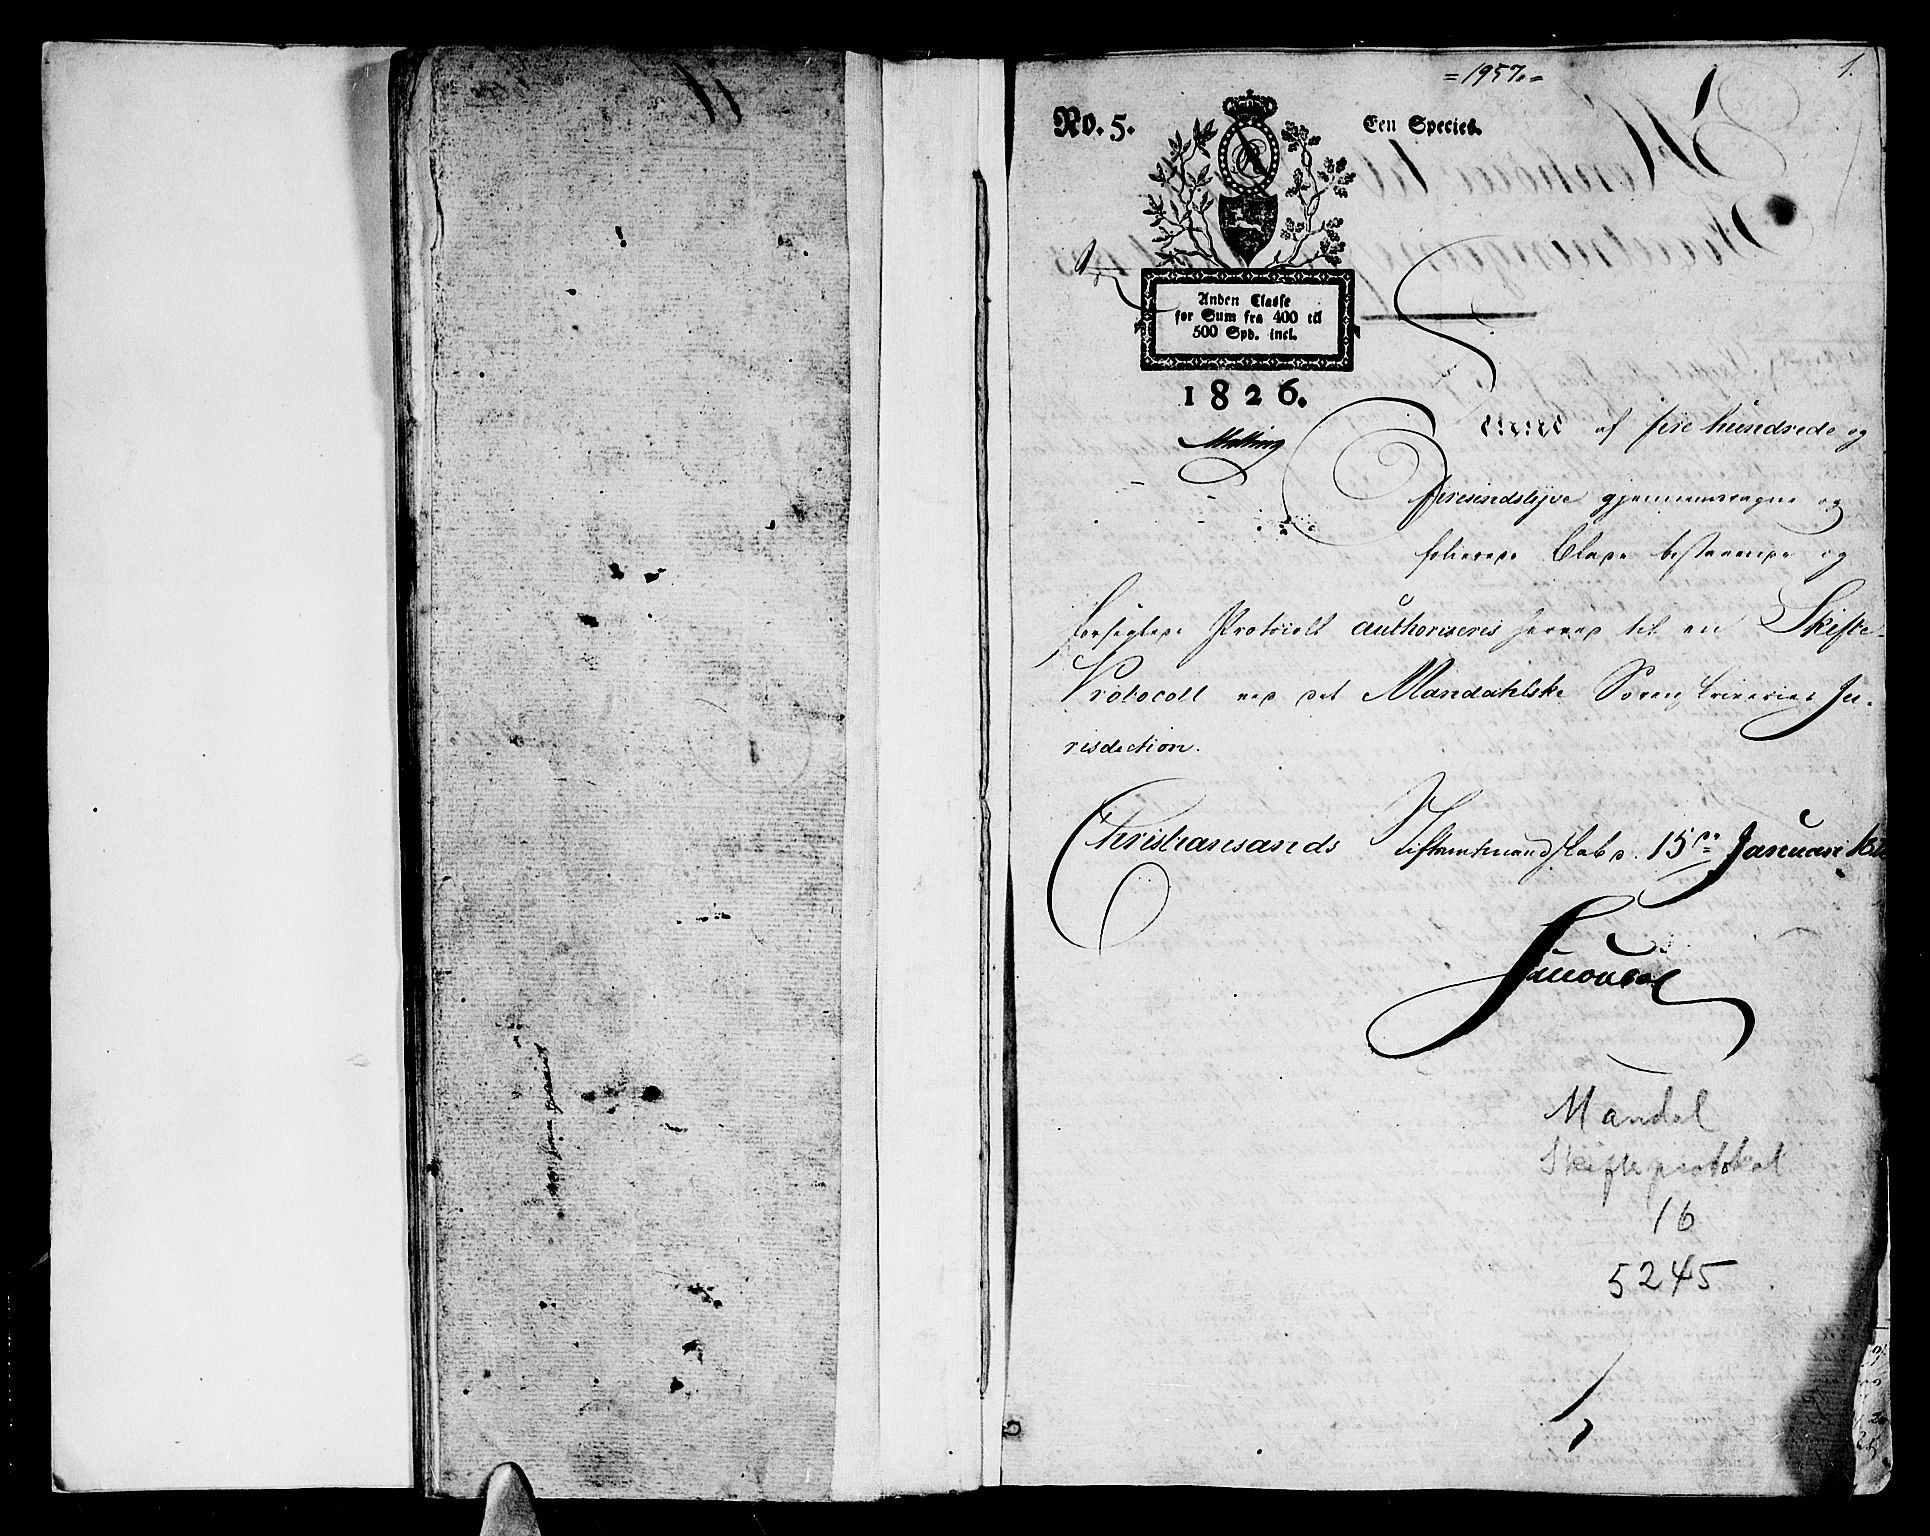 = 1957. =
1.
No. 5.
Een Species.
Anden Classe
for Sum fra 400 til
500 Spd. incl.
1826.
Malling
af fire hundrede og
firesindstyve gjennemdragne og
folierede Blade bestaaende og
forseglede Protocoll authoriseres herved til en Skifte-
Protocoll ved det Mandahlske Sorenskriveries Ju-
risdiction.
Christiansands Stiftamtmandskab d. 15de Januar
Mandal
Skifteprotokol
16
5245